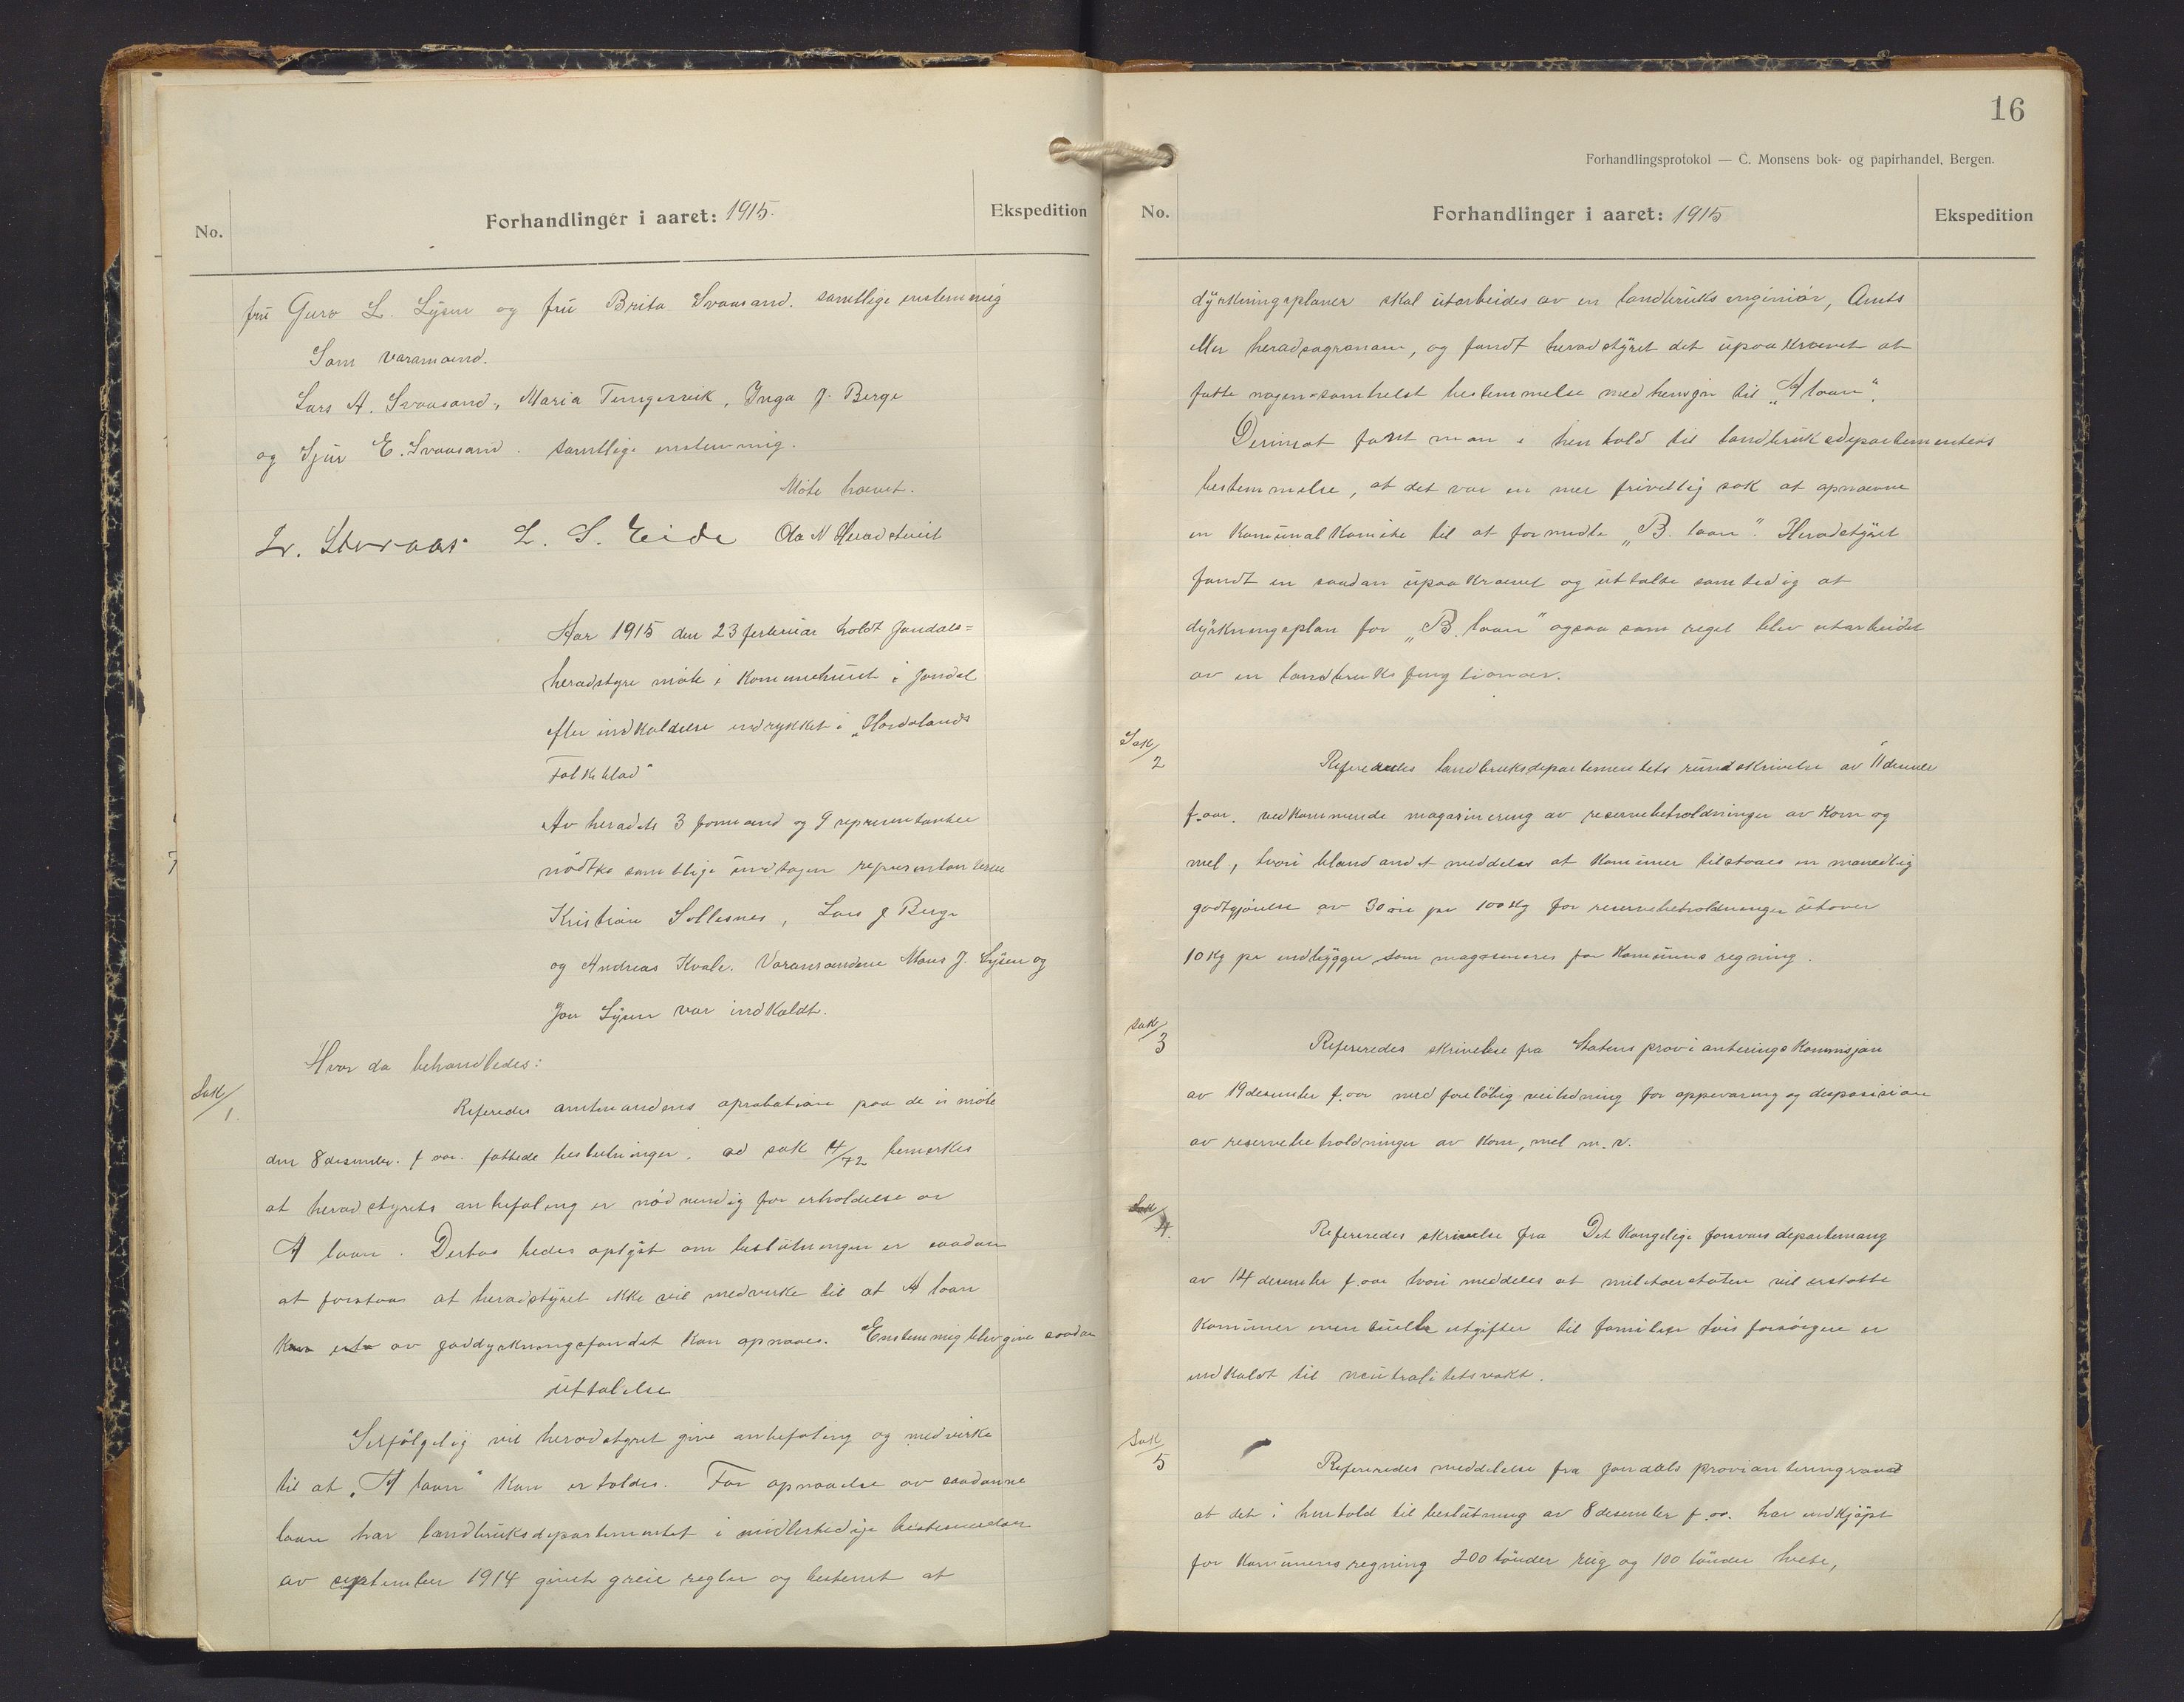 No.
Forhandlinger i aaret: 1915.
Ekspedition
fru Guro L. Lysen og fru Brita Svaasand. samtlige enstemmig
Som varamænd.
Lars A. Svaasand, Maria Tengesvik, Inga J. Berge
og Sjur E. Svaasand. samtlige enstemmig.
Møte hævet.
L. S. Eide Ola N Heradstveit
Aar 1915 den 23 februar holdt Jondals=
heradstyre møte i Komunehuset i Jondal
efter indkaldelse indrykket i „Hordalands
Folkeblad"
Av heradets 3 formænd og 9 representanter
mødtte samtlige undtagen representanterne
Kristian Sollesnes, Lars J Berge
og Andreas Kvale. Varamændene Mons J. Lysen og
Jon Lysen var indkaldt.
Hvor da behandledes:
Sak/1
Referedes amtmandens aprobation paa de in møte
den 8 desember. f aar. fattede beslutninger. ad sak 4/72 bemerkes
at heradstyrets anbefaling er nødvendig for erholdelse av
A laan. Derhos bedes oplyst om beslutningen er saadan
at forstaa at heradstyret ikke vil medvirke til at A laan
av jorddyrkningsfondet kan opnaaes. Enstemmig blev give saadan
uttalelse
Selfølgelig vil heradstyret give anbefaling og medvirke
til at „A laan" kan erholdes. For opnaaelse av saadanne
laan har landbruksdepartementet i midlertidige bestemmelser
av september 1914 givet greie regler og bestemt at
16
Forhandlingsprotokol — C. Monsens bok- og papirhandel, Bergen.
No.
Forhandlinger i aaret: 1915
Ekspedition
dyrkningsplaner skal utarbeides av en landbruks enginiør, Amts
eller heradsagronom, og fandt heradstyret det upaakrævet at
fatte nogensomhelst bestemmelse med hensyn til „A laan".
Derimot fandt man i henhold til landbruksdepartementets
bestemmelse, at det var en mer frivillig sak at opnævne
en Komunal Komite til at formidle „B. laan". Heradstyret
fandt en saadan upaakrævet og uttalte samtidig at
dyrkningsplan for „B. laan" ogsaa som regel blev utarbeidet
av en landbruks fungtionær.
Sak/2
Refereredes landbruksdepartementets rundskrivelse av 11 desember
f. aar. vedkommende magasinering av reservebeholdninger av Korn og
mel, hvori bland andet meddeles at Komuner tilstaaes en manedlig
godtgjørelse av 30 øre pr 100 kg for reservebeholdninger utover
10 kg pr indbygger som magasineres for Komunens regning.
Sak/3
Refereredes skrivelse fra Statens provianteringskommisjon
av 19 desember f. aar med foreløbig veiledning for oppevaring og desposision
av reservebeholdninger av Korn, mel m. v.
Sak/4.
Refereredes skrivelse fra Det Kongelige forsvarsdepartemang
av 14 desember f. aar hvori meddeles at militærstaten vil erstatte
Komuner eventuelle utgifter til familier hvis forsørgere er
indkaldt til neutralitetsvakt.
Sak/5
Refereredes meddelelse fra Jondals provianteringsraad
at det i henhold til beslutning av 8 desember f. aa. har indkjøpt
for Komunens regning 200 tønder rug og 100 tønder hvete,